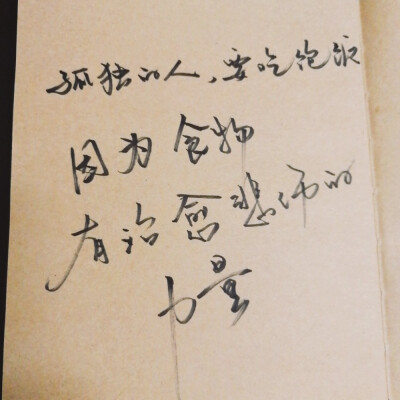 孤独的人，要吃饱饭
因为食物
有治愈悲伤的
力量